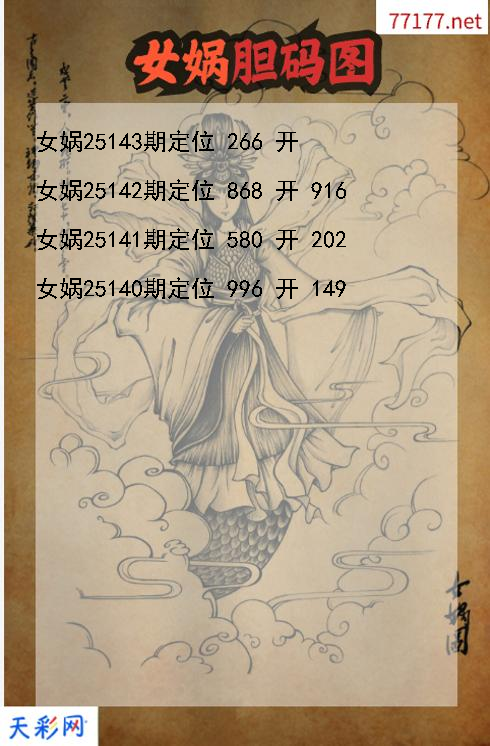 77177.net
女娲胆码图
女娲25143期定位 266 开
女娲25142期定位 868 开 916
女娲25141期定位 580 开 202
女娲25140期定位 996 开 149
女娲图
天彩网